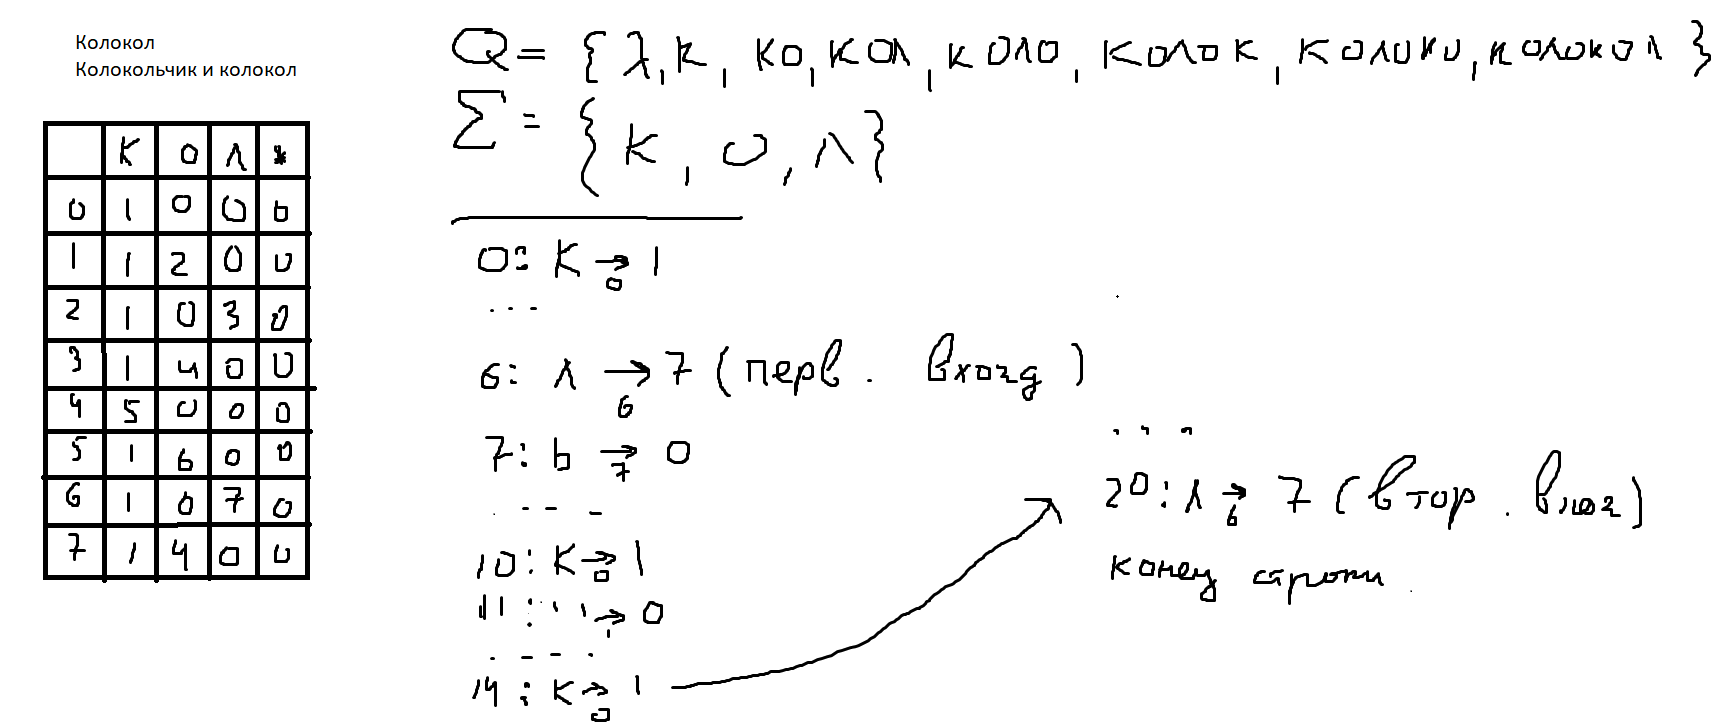 Колокол
Колокольчик и колокол
К О Л *
0 1 0 0 0
1 1 2 0 0
2 1 0 3 0
3 1 4 0 0
4 5 0 0 0
5 1 6 0 0
6 1 0 7 0
7 1 4 0 0
Q = {λ, к, ко, кол, коло, колок, колоко, колокол}
Σ = {к, о, л}
0: К →0 1
...
6: л →6 7 (перв. вхожд)
7: ь →7 0
....
10: К →0 1
11: ' ' →1 0
....
14: К →0 1
...
20: л →6 7 (втор. вхож)
конец строки.